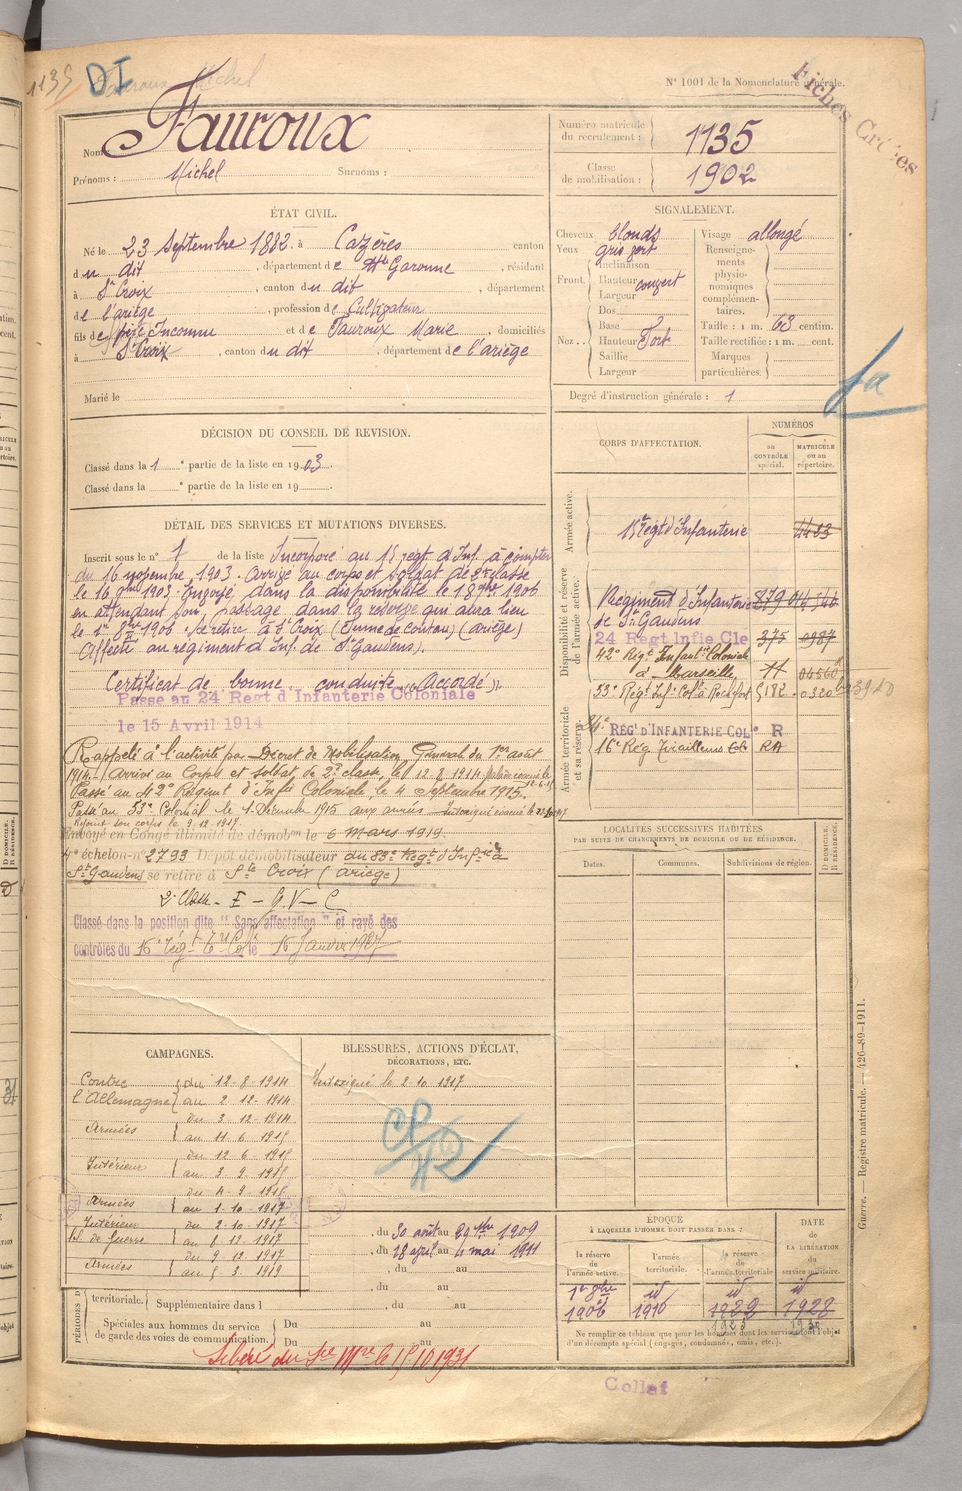 1135
DI
N° 1001 de la Nomenclature générale.
Fiches Créées
Nom: Fauroux
Prénoms : Michel Surnoms :
Numéro matricule du recrutement : 1135
Classe de mobilisation : 1902
ÉTAT CIVIL.
Né le 23 Septembre 1882. à Cazères canton
du dit, département de Hte Garonne, résidant
à Ste Croix, canton du dit, département
de l'ariège, profession de Cultivateur
fils de père Inconnu et de Fauroux Marie, domiciliés
à Ste Croix, canton du dit, département de l'ariège
Marié le
SIGNALEMENT.
Cheveux blonds
Yeux gris vert
Front. Inclinaison
Hauteur couvert
Largeur
Nez.. Dos
Base
Hauteur Fort
Saillie
Largeur
Visage allongé
Renseignements physionomiques complémentaires.
Taille : 1 m. 63 centim.
Taille rectifiée : 1 m. cent.
Marques particulières.
Degré d'instruction générale : 1
DÉCISION DU CONSEIL DE REVISION.
Classé dans la 1 e partie de la liste en 1903.
Classé dans la e partie de la liste en 19
CORPS D'AFFECTATION.
NUMÉROS
au CONTRÔLE spécial.
MATRICULE ou au répertoire.
Armée active.
15e Régt d'Infanterie 4483
Disponibilité et réserve de l'armée active.
Régiment d'Infanterie
de St Gaudens
24 Regt Infie Cle 375 0987
42e Régt Infantie Coloniale
à Marseille 11 04560
53e Rég. Inf. Col. à Rochefort
Armée territoriale et sa réserve.
REGt D'INFANTERIE COLe R
16e Rég Tirailleurs Col RA
DÉTAIL DES SERVICES ET MUTATIONS DIVERSES.
Inscrit sous le n° 1 de la liste Incorporé au 15 regt d'Inf. à compter
du 16 novembre 1903. Arrivé au corps et soldat de 2e classe
le 16 9bre 1903. Envoyé dans la disponibilité le 18 7bre 1906
en attendant son passage dans la réserve qui aura lieu
le 1er 8bre 1906. Se retire à Ste Croix (Ariège)
Affecté au régiment d'Inf. de St Gaudens).
Certificat de bonne conduite "Accordé".
Passe au 24 Regt d'Infanterie Coloniale
le 15 Avril 1914
Rappelé à l'activité par Décret de Mobilisation Générale du 1er août
1914. Arrivé au Corps et soldat de 2e classe, le 12.8.1914.
Passé au 42e Régiment d'Infie Coloniale le 4 Septembre 1915.
Passé au 53e Colonial le 1 Décembre 1915 aux armées
Rejoint son corps le 9.12.1917
Envoyé en Congé illimité de démobon le 6 Mars 1919.
4e échelon n° 2793 Dépôt démobilisateur du 83e Regt d'Infrie à
St Gaudens se retire à Ste Croix (ariège)
Classé dans la position dite "Sans affectation" et rayé des
contrôles du 16e rég. le 15 Janvier 1927
LOCALITÉS SUCCESSIVES HABITÉES
PAR SUITE DE CHANGEMENTS DE DOMICILE OU DE RÉSIDENCE.
Dates.
Communes.
Subdivisions de région.
D DOMICILE. R RÉSIDENCE.
CAMPAGNES.
Contre l'Allemagne du 12-8-1914
au 2-12-1914
Armées du 3-12-1914
au 11.6-1915
Intérieur du 12-6-1915
au 3-9-1915
Armées du 4-9-1915
au 1-10-1917
Intérieur du 2-10-1917
Bl. de guerre au 8-12-1917
Armées du 9-12-1917
au 5.3.1919
BLESSURES, ACTIONS D'ÉCLAT,
DÉCORATIONS, ETC.
Intoxiqué le 2.10.1917
, du 30 août au 1909
, du 18 avril au 4 mai 1911
, du au
, du au
territoriale. Supplémentaire dans l , du au
Spéciales aux hommes du service
de garde des voies de communication.
Du au
Du au
PÉRIODES D
ÉPOQUE
À LAQUELLE L'HOMME DOIT PASSER DANS :
la réserve de l'armée active.
l'armée territoriale.
la réserve de l'armée territoriale
DATE DE LA LIBÉRATION du service militaire.
1er 8bre 1906
id 1916
id 1922
id 1928
Ne remplir ce tableau que pour les hommes dont les services sont l'objet
d'un décompte spécial (engagés, condamnés, omis, etc.).
Libéré du Sce Mre le 15.10.1931
Collet
Guerre. — Registre matricule. — 426-89-1911.